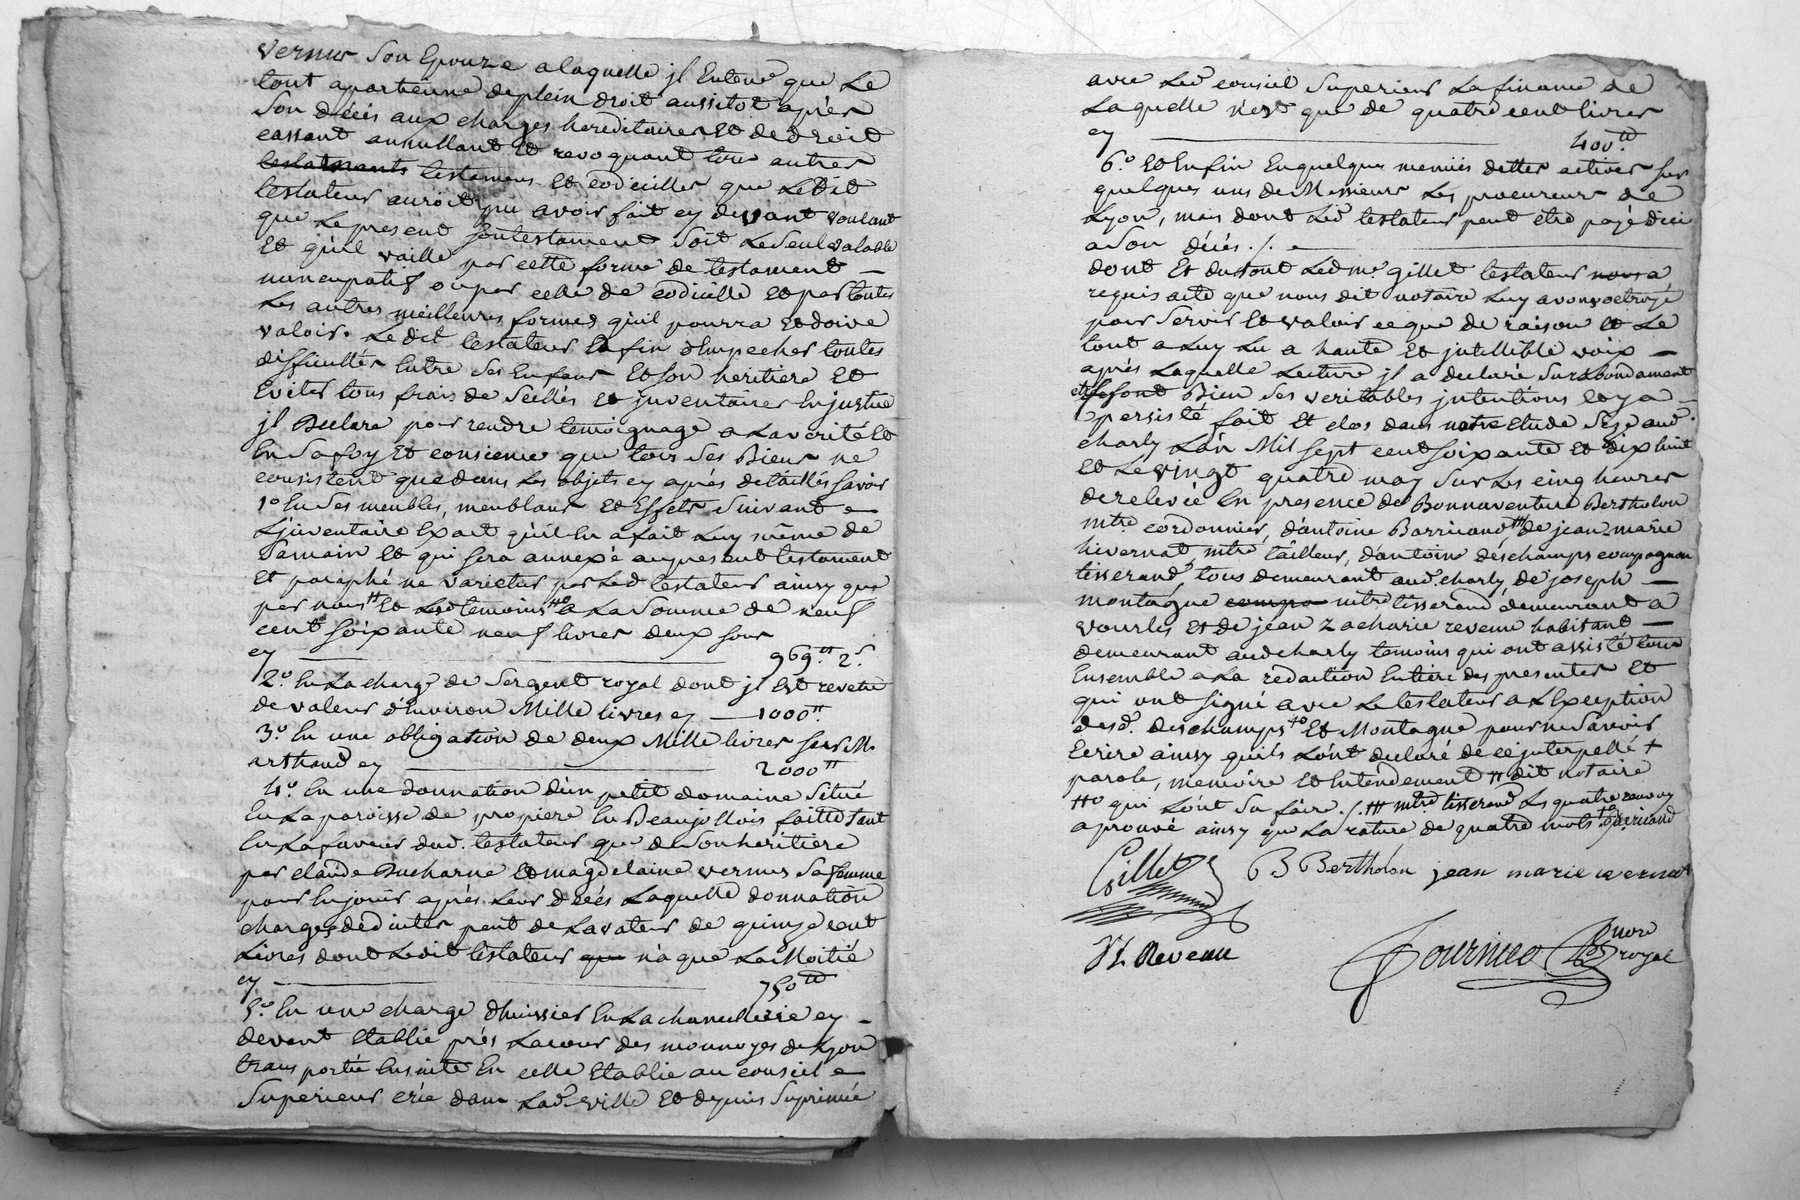 vernus Son Epouze a laquelle jl Entend que Le
tout apartienne de plein droit aussitot après
Son décés aux charges hereditaires Et de droit
cassant annullant Et revoquant tous autres
testamens Et codicilles que Ledit
testateur auroit pu avoir fait cy devant voulant
que Le present Son testament Soit Le Seul valable
Et qu'il vaille par cette forme de testament –
nuncupatif ou par celle de codicille Et par toutes
Les autres meilleures formes qu'il pourra Et doive
valoir. Le dit testateur Enfin d'Empecher toutes
difficultés Entre Ses Enfans Et Son heritiere Et
Eviter tous frais de Scellés Et jnventaires En justice
jl Declare pour rendre temoignage a La verité Et
En Sa foy Et conscience que tous Ses Biens ne
consistent que dans Les objets cy après detaillés Savoir
1.º En Ses meubles, meublans Et Effets Suivant
L'jnventaire Exact qu'il En a fait Luy même de
Sa main Et qui Sera annexé au present testament
Et paraphé ne varietur par Led. testateur ainsy que
par nous Et Lesd. temoins a La Somme de neuf
cent Soixante neuf livres deux Sous
cy 969.# 2.s
2.º En La charge de Sergent royal dont jl Est revetu
de valeur d'Environ Mille livres cy — 1000.#
3.º En une obligation de deux Mille livres Sur M.
arthaud cy 2000#
4.º En une donnation d'un petit domaine Situé
En La paroisse de propiere En Beaujollois faitte tant
En La faveur dud. testateur que de Son heritiere
par claude Ducharne Et magdelaine vernus Sa femme
pour En jouir après Leur décés Laquelle donnation
charges deduites peut de La valeur de quinze cent
Livres dont Ledit testateur que n'a que La Moitié
cy 750#
5.º En une charge d'huissier En La chancellerie cy –
devant Etablie près La cour des monnoyes de Lyon
transportée Ensuite En celle Etablie au conseil
Superieur crée dans Lad. ville Et depuis Suprimée
avec Led. conseil Superieur La finance de
Laquelle n'est que de quatre cent livres
cy 400.#
6.º Et Enfin En quelques menües dettes actives Sur
quelques uns de Messieurs Les procureurs de
Lyon, mais dont Led. testateur peut être payé d'icy
a Son décés ./.
dont Et du tout Led. me. gillet testateur nous a
requis acte que nous dit notaire Luy avons octroyé
pour Servir Et valoir ce que de raison Et Le
tout a Luy Lu a haute Et jntellible voix –
après Laquelle Lecture jl a declaré Surabondament
Bien Ses veritables jntentions Et y a –
persisté fait Et clos dans notre Etude Size aud.
charly L'an Mil Sept cent Soixante Et dix huit
Et Le vingt quatre may Sur Les cinq heures
de relevée En presence de Bonnaventure Bertholon
mtre cordonnier, d'antoine Barricand de jean-marie
hivernat mtre tailleur, d'antoine deschamps compagnon
tisserand, tous demeurant aud. charly, de joseph –
montagne compa mtre tisserand, demeurant a
vourles Et de jean zacharie reveue habitant –
demeurant aud charly temoins qui ont assisté tous
Ensemble a La redaction Entiere des presentes Et
qui ont Signé avec Le testateur a L'Exception
desd. deschamps Et Montagne pour ne Savoir
Ecrire ainsy qu'ils L'ont declaré de ce jnterpellé +
parole, memoire Et Entendement # dit notaire
#º qui L'ont Su faire ./. ### mtre tisserand Les quatre renvoy
aprouvé ainsy que La rature de quatre mots Barricand
Gillet B Bertholon jean marie ivernat
J Z. Reveue Fournereo nore
royal